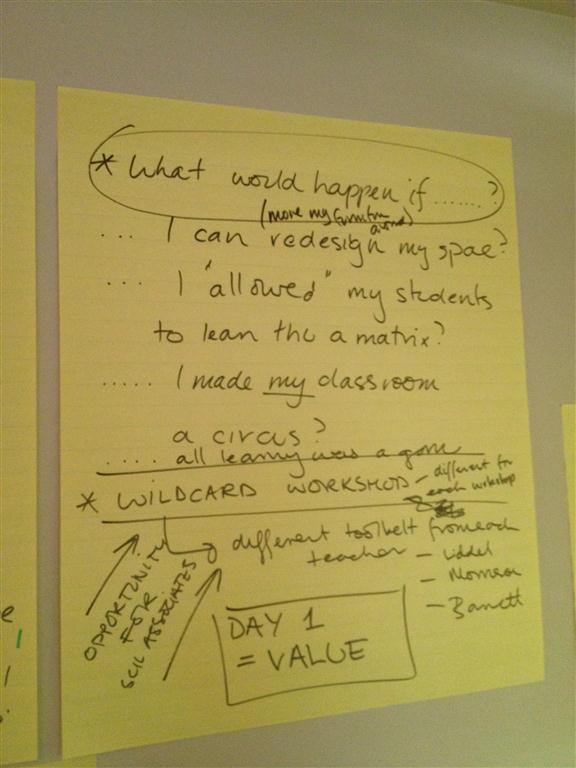 * What would happen if ....... ?
(move my furniture around)
... I can redesign my space?
.... I "allowed" my students
to learn thu a matrix?
..... I made my classroom
a circus?
.... all learning was a game
* WILDCARD WORKSHOP - different for
each workshop
different toolbelt from each
teacher - Liddel
-
- Barrett
OPPORTUNITY
FOR
SCIL ASSOCIATES
DAY 1
= VALUE